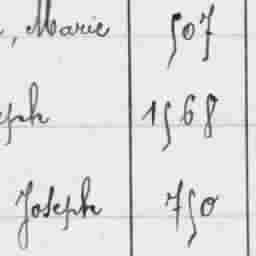 , Marie 507
eph 1568
Joseph 750